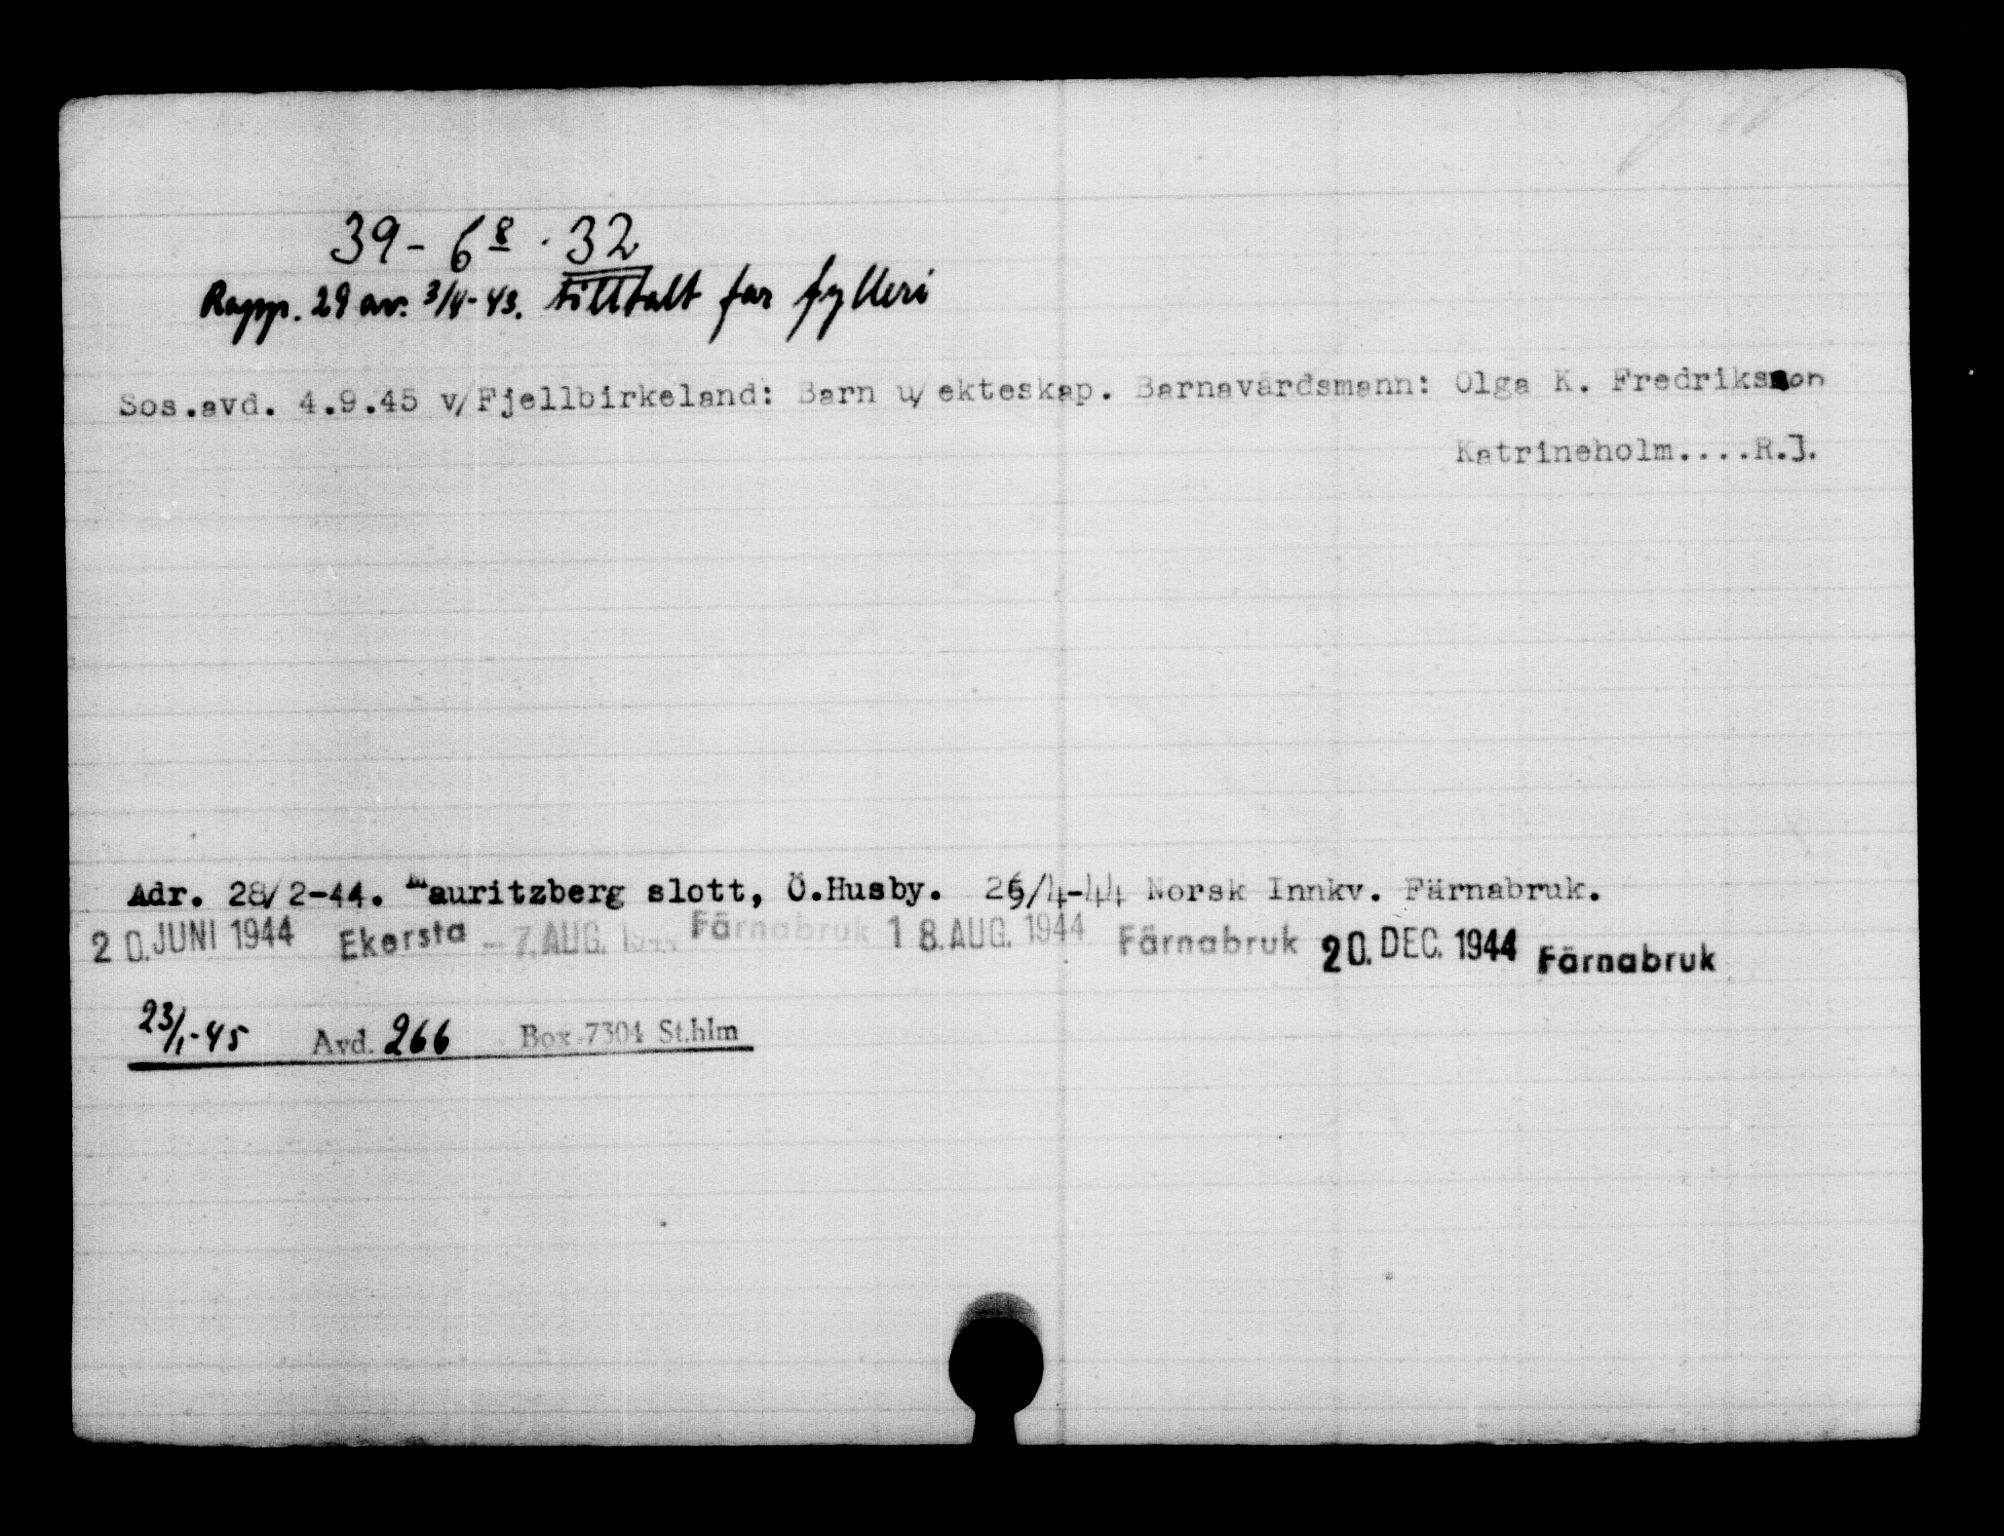 39 - 6 8 . 32
Rapp. 29 av. 3/4-43. tilltalt for fylleri
Sos.avd. 4.9.45 v/Fjellbirkeland: Barn u/ekteskap. Barnavårdsmann: Olga K. Fredriksson
Katrineholm....R.J.
Adr. 28/2-44. Mauritzberg slott, Ö.Husby. 26/4-44 Norsk Innkv. Färnabruk.
20. JUNI 1944 Ekersta -7. AUG. 1944 Färnabruk 18. AUG. 1944 Färnabruk 20. DEC. 1944 Färnabruk
23/1-45 Avd. 266 Box 7304 St.hlm